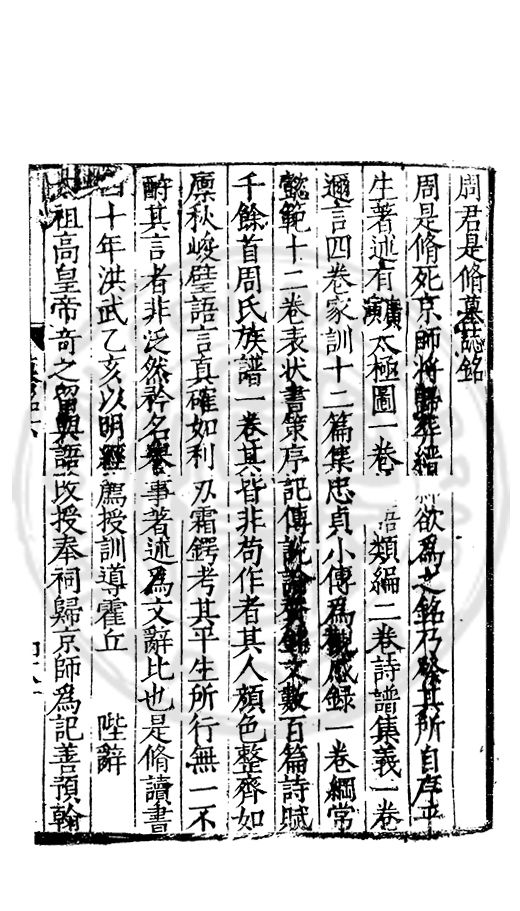 周君是脩墓誌銘
周是脩死京師將歸葬縉紳欲爲之銘乃發其所自序平
生著述有廣演太極圖一卷 語類編二卷詩譜集義一卷
邇言四卷家訓十二篇集忠貞小傳爲觀感録一卷綱常
懿範十二卷表状書策序記傳説論賛銘文數百篇詩賦
千餘首周氏族譜一卷其皆非苟作者其人頗色整齊如
廪秋峻壁語言真確如利刃霜鍔考其平生所行無一不
酧其言者非泛然矜名譽事著述爲文辭比也是脩讀書
四十年洪武乙亥以明經薦授訓導霍丘 陛辭
祖高皇帝奇之留與語改授奉祠歸京師爲記善預翰